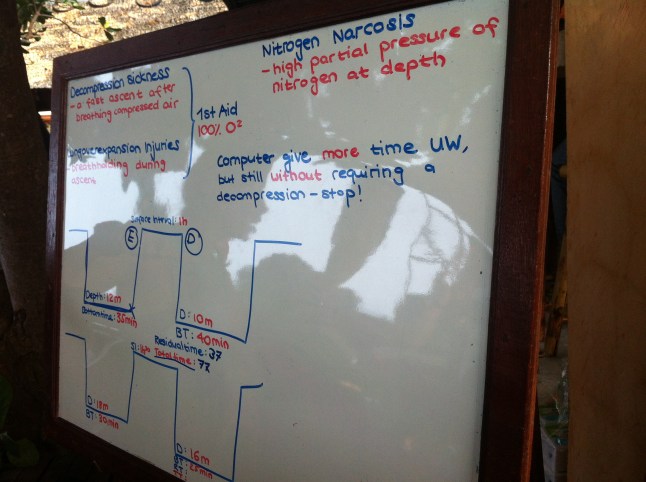 Nitrogen Narcosis
- high partial pressure of
nitrogen at depth
Decompression Sickness
- a fast ascent after
breathing compressed air
Lungoverexpansion Injuries
- breathholding during
ascent
1st Aid
100% O²
Computer give more time UW,
but still without requiring a
decompression - stop!
Surface Interval: 1h
E
D
Depth: 12m
Bottomtime: 35min
D: 10m
BT: 40min
Residualtime: 37
Total time: 77
D: 18m
BT: 30min
D: 16m